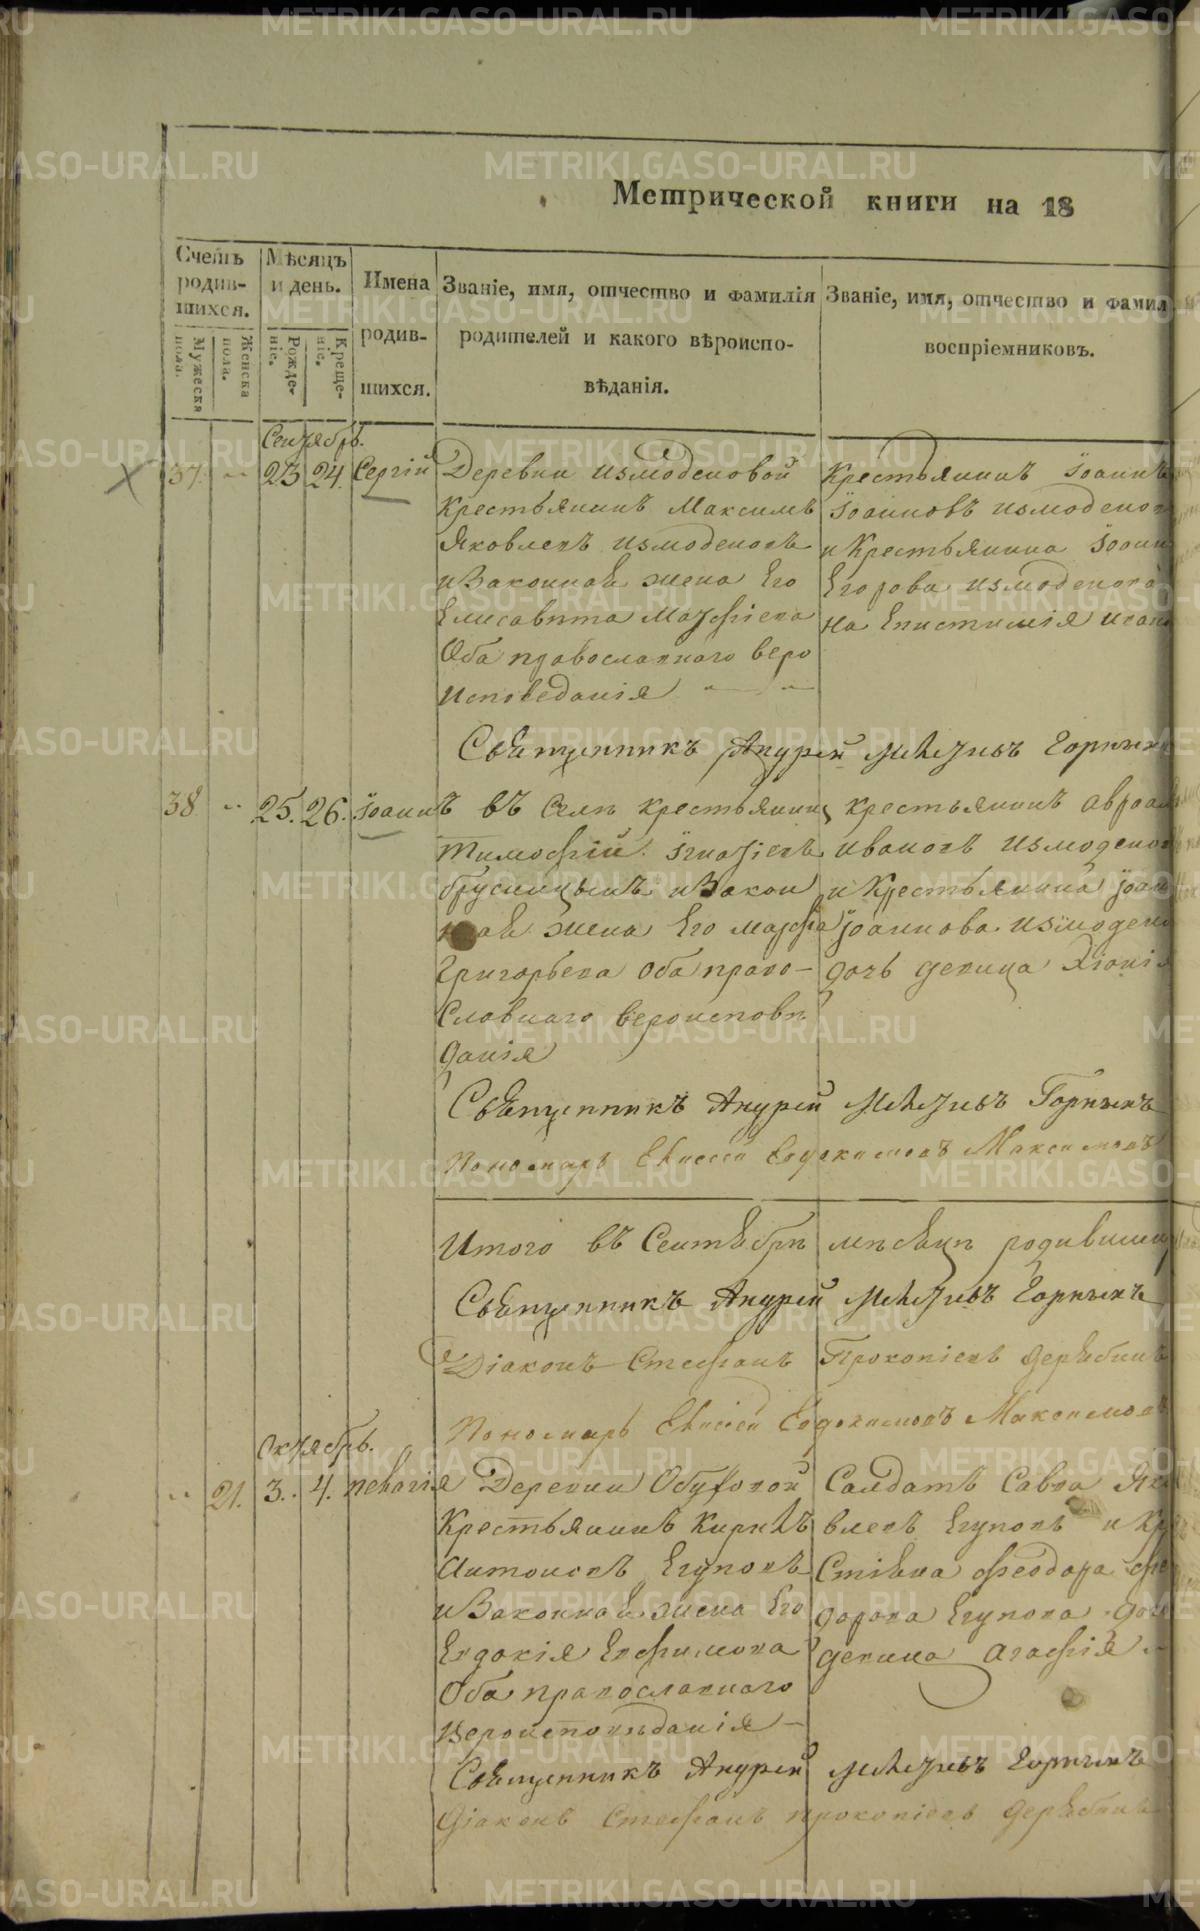 METRIKI.GASO-URAL.RU
Метрической книги на 18
Счетъ родив-шихся.
Мужеска пола.
Женска пола.
Мѣсяцъ и день.
Рожде-ніе.
Креще-ніе.
Имена родив-шихся.
Званіе, имя, отчество и фамилія
родителей и какого вѣроиспо-
вѣданія.
Званіе, имя, отчество и фамил
воспріемниковъ.
Сентябрь.
37. 23 24. Сергій
Деревни Измоденовой
Крестьянинъ Максимъ
Яковлевъ Измоденовъ
и Законная жена Его
Елисавѣта
Оба православнаго веро
Исповеданія
Крестьянинъ Іоаннъ
Іоанновъ Измоденов
и Крестьянина Іоанн
Егорова Измоденова
на Епистимія
Священникъ Андрей Горныхъ
38. 25. 26. Іоаннъ
въ Селѣ крестьянинъ
Тимофій Ігнатіевъ
Брусницынъ и Закон
ная жена Его Марфа
Григорьева Оба право-
Славнаго вероисповѣ
данія
крестьянинъ Авраам
Ивановъ Измоденов
и Крестьянина Іоан
Іоаннова Измоден
дочь девица Хіонія
Священникъ Андрей Горныхъ
Пономарь Евдокимовъ Максимовъ
Итого въ Сентябрѣ мѣсяцѣ родивших
Священникъ Андрей Горныхъ
Діаконъ Стефанъ Прокопіевъ Дерябинъ
Пономарь Евдокимовъ Максимовъ
Октябрь.
21. 3. 4. Пелагія
Деревни Обуховой
Крестьянинъ Кирилъ
Антоновъ Егуповъ
и Законная жена Его
Евдокія Евфимова
Оба православнаго
вероисповѣданія
Салдатъ Савва Яко
влевъ Егуповъ и Кр
Стіяна Феодора Фео
дорова Егупова доч
девица Агафія
Священникъ Андрей Горныхъ
Діаконъ Стефанъ Прокопіевъ Дерябинъ